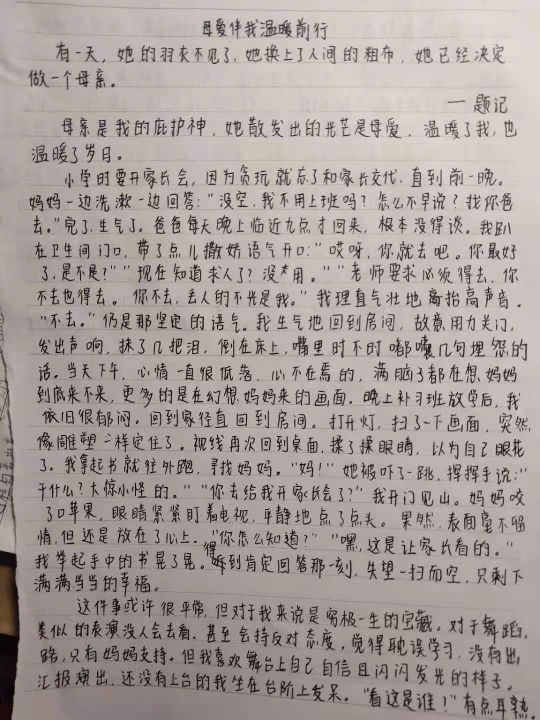 母爱伴我温暖前行
有一天，她的羽衣不见了，她换上了人间的粗布，她已经决定
做一个母亲。
——题记
母亲是我的庇护神，她散发出的光芒是母爱，温暖了我，也
温暖了岁月。
小学时要开家长会，因为贪玩就忘了和家长交代，直到前一晚。
妈妈一边洗漱一边回答："没空，我不用上班吗？怎么不早说？找你爸
去。"完了，生气了。爸爸每天晚上临近九点才回来，根本没得谈。我趴
在卫生间门口，带了点儿撒娇语气开口："哎呀，你就去吧。你最好
了，是不是？""现在知道求人了？没用。""老师要求必须得去，你
不去也得去。你不去，丢人的不光是我。"我理直气壮地高抬高声音。
"不去。"仍是那坚定的语气。我生气地回到房间，故意用力关门，
发出声响，抹了几把泪，倒在床上，嘴里时不时嘟囔几句埋怨的
话。当天下午，心情一直很低落，心不在焉的，满脑子都在想妈妈
到底来不来，更多的是在幻想妈妈来的画面。晚上补习班放学后，我
依旧很郁闷。回到家径直回到房间。打开灯，扫了一下画面，突然
像雕塑一样定住了。视线再次回到桌面，揉了揉眼睛，以为自己眼花
了。我拿起书就往外跑，寻找妈妈。"妈！"她被吓了一跳，挥挥手说："
干什么？大惊小怪的。""你去给我开家长会了？"我开门见山。妈妈咬
了口苹果，眼睛紧紧盯着电视，平静地点了点头。果然，表面毫不留
情，但还是放在了心上。"你怎么知道？""嘿，这是让家长看的。"
我举起手中的书晃了晃。得到肯定回答那一刻，失望一扫而空，只剩下
满满当当的幸福。
这件事或许很平常，但对于我来说是穷极一生的宝藏。对于舞蹈，
类似的表演没人会去看，甚至会持反对态度，觉得耽误学习，没有出
路，只有妈妈支持。但我喜欢舞台上自己自信且闪闪发光的样子。
汇报演出，还没有上台的我坐在台阶上发呆。"看这是谁？"有点耳熟。